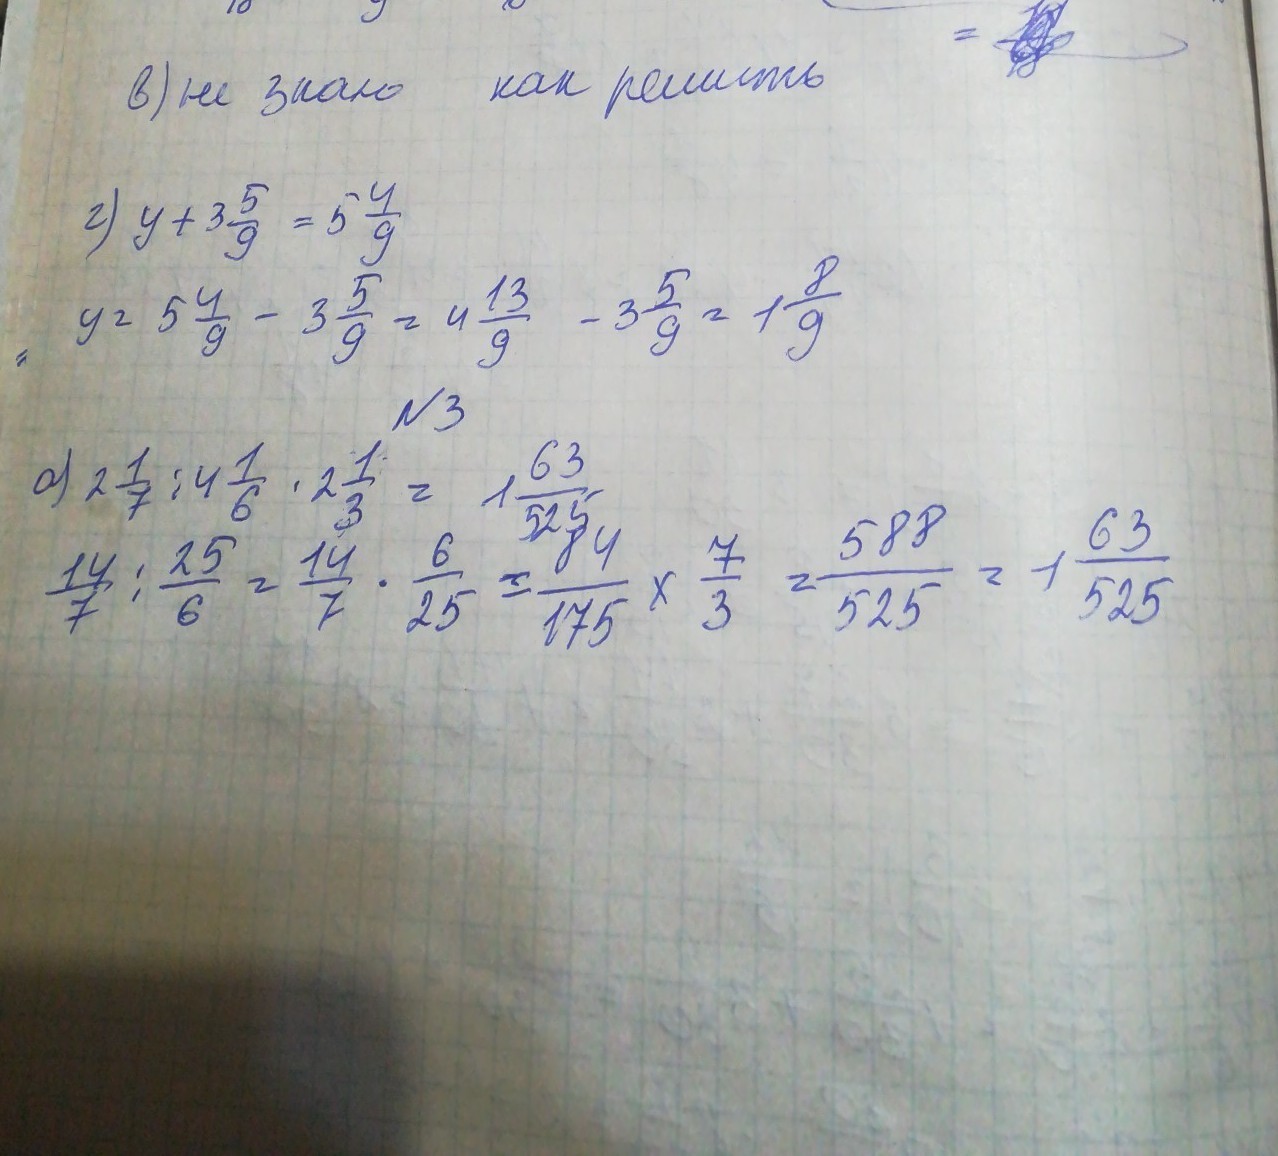 в) не знаю как решить
г) y + 3 5/9 = 5 4/9
y = 5 4/9 - 3 5/9 = 4 13/9 - 3 5/9 = 1 8/9
N3
а) 2 1/7 : 4 1/6 · 2 1/3 = 1 63/525
14/7 : 25/6 = 14/7 · 6/25 = 84/175 x 7/3 = 588/525 = 1 63/525